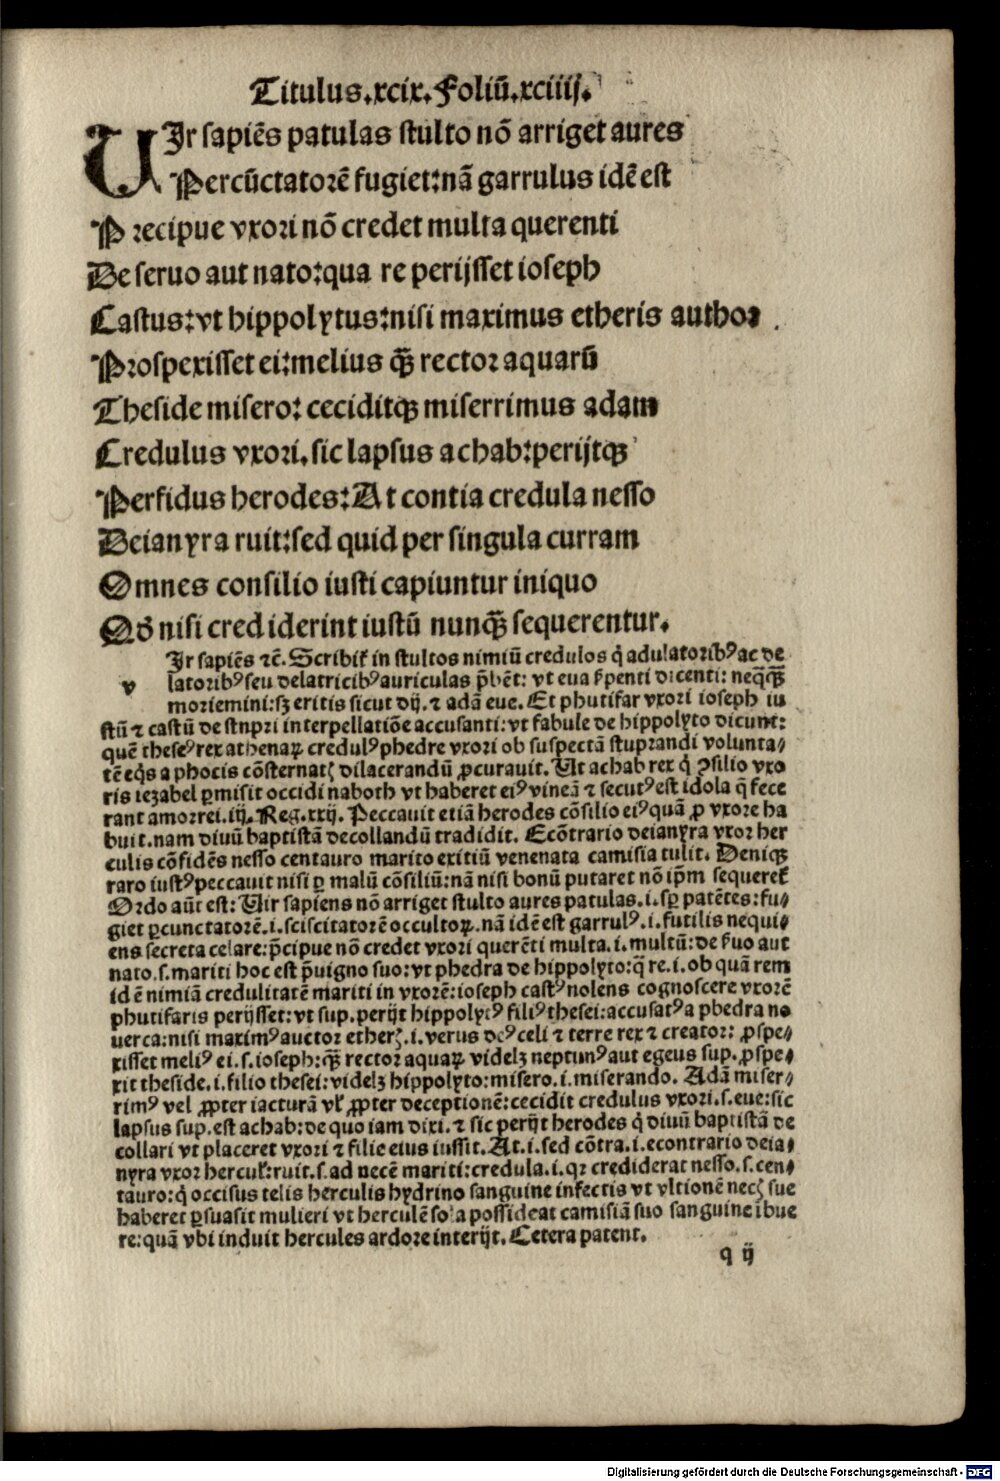 Titulus.xcix.Foliū.xciiij.
VIr sapiēs patulas stulto nō arriget aures
Percūctatorē fugiet:nā garrulus idē est
Precipue vxori nō credet multa querenti
De seruo aut nato:qua re perijsset ioseph
Castus:vt hippolytus:nisi maximus etheris author
Prospexisset ei:melius qȝ rector aquarū
Theside misero: ceciditqȝ miserrimus adam
Credulus vxori.sic lapsus achab:perijtqȝ
Perfidus herodes:At contia credula nesso
Deianyra ruit:sed quid per singula curram
Omnes consilio iusti capiuntur iniquo
Qđ nisi crediderint iustū nunqȝ sequerentur.
Ir sapiēs ⁊c̄. Scribit᷑ in stultos nimiū credulos q̇ adulatoribꝰ ac de
v latoribꝰ seu delatricibꝰ auriculas p̄bēt: vt eua s̄penti dicenti: neqȝqȝ
moriemini:sȝ eritis sicut dij.⁊ adā eue. Et phutifar vxori ioseph iu
stū ⁊ castū de stnpri interpellatiōe accusanti:vt fabule de hippolyto dicunt:
quē theseꝰ rex athenaꝝ credulꝰ phedre vxori ob suspectā stuprandi volunta⸗
tē eq̇s a phocis cōsternatꝭ dilacerandū ꝓcurauit. Ut achab rex q̇ ꝯsilio vxo
ris iezabel ꝑmisit occidi naboth vt haberet eiꝰ vineā ⁊ secutꝰ est idola q̄ fece
rant amorrei.iij.Reg.xxij. Peccauit etiā herodes cōsilio eiꝰ quā ꝓ vxore ha
buit.nam diuū baptistā decollandū tradidit. Ecōtrario deianyra vxor her
culis cōfidēs nesso centauro marito exitiū venenata camisia tulit. Deniqȝ
raro iustꝰ peccauit nisi ꝑ malū cōsiliū:nā nisi bonū putaret nō ip̄m sequeret᷑
Ordo aūt est: Uir sapiens nō arriget stulto aures patulas.i.sꝑ patētes:fu⸗
giet ꝑcunctatorē.i.sciscitatorē occultoꝝ.nā idē est garrulꝰ.i.futilis nequi⸗
ens secreta celare:p̄cipue nō credet vxori querēti multa.i.multū:de s̄uo aut
nato.s.mariti hoc est p̄uigno suo:vt phedra de hippolyto:q̄ re.i.ob quā rem
id ē nimiā credulitatē mariti in vxorē:ioseph castꝰ nolens cognoscere vxorē
phutifaris perijsset:vt sup.perijt hippolytꝰ filiꝰ thesei:accusatꝰ a phedra no
uerca:nisi maximꝰ auctor etherꝭ.i.verus deꝰ celi ⁊ terre rex ⁊ creator: ꝓspe⸗
xisset meliꝰ ei.s.ioseph:qȝ rector aquaꝝ videlȝ neptunꝰ aut egeus sup.ꝓspe⸗
xit theside.i.filio thesei:videlȝ hippolyto:misero.i.miserando. Adā miser⸗
rimꝰ vel ꝓpter iacturā vl̓ ꝓpter deceptionē:cecidit credulus vxori.s.eue:sic
lapsus sup.est achab:de quo iam dixi.⁊ sic perijt herodes q̇ diuū baptistā de
collari vt placeret vxori ⁊ filie eius iussit.At.i.sed cōtra.i.econtrario deia⸗
nyra vxor hercul̓:ruit.s.ad necē mariti:credula.i.qr crediderat nesso.s.cen⸗
tauro:q̇ occisus telis herculis hydrino sanguine infectis vt vltionē necꝭ sue
haberet ꝑsuasit mulieri vt herculē sola possideat camisiā suo sanguine ībue
re:quā vbi induit hercules ardore interijt. Cetera patent.
q ij
Digitalisierung gefördert durch die Deutsche Forschungsgemeinschaft - DFG